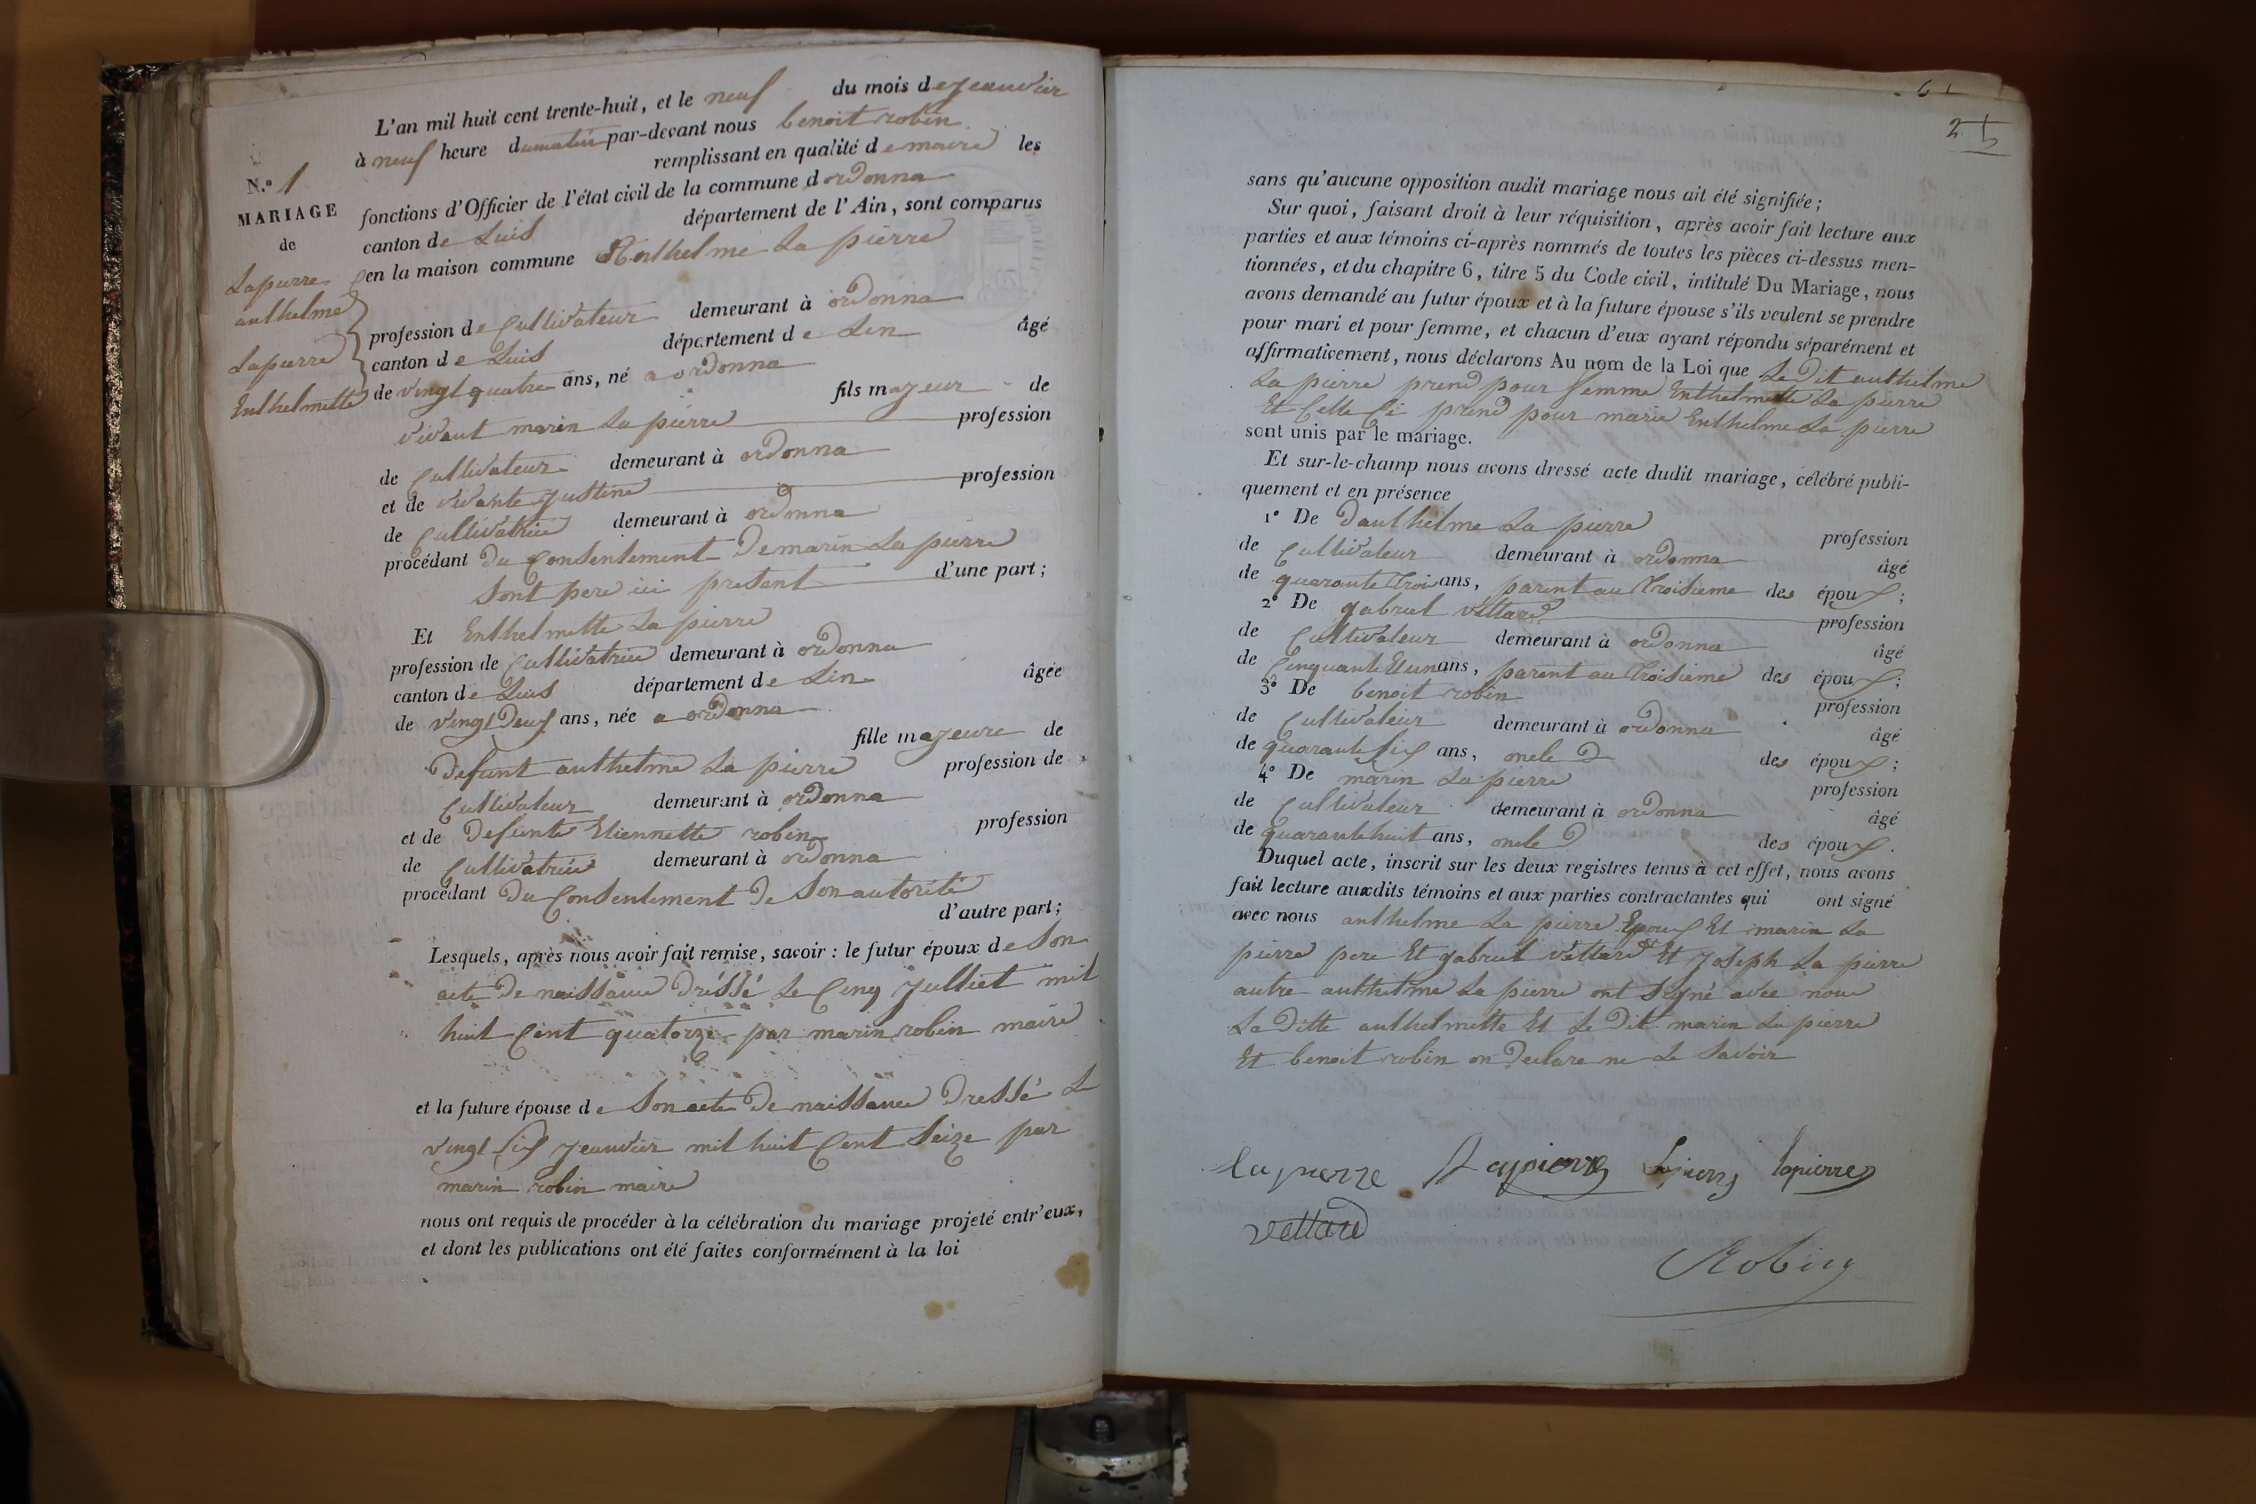 L'an mil huit cent trente-huit, et le neuf du mois de Jeanvier
à neuf heure dumatin par-devant nous benoit robin
remplissant en qualité de maire les
fonctions d'Officier de l'état civil de la commune dordonna
canton de Luis département de l'Ain, sont comparus
en la maison commune Anthelme La pierre
N.º 1
MARIAGE
de
Lapierre
anthelme
Lapierre
Enthelmette
profession de Cultivateur demeurant à ordonna
canton de Luis département de Lin âgé
de vingt quatre ans, né a ordonna
fils majeur de
vivant marin La pierre profession
de Cultivateur demeurant à ordonna
et de vivante Justine profession
de Cultivatrice demeurant à ordonna
procédant du Consentement De marin La pierre
sont pere ici present d'une part;
Et Enthelmette La pierre
profession de Cultivatrice demeurant à ordonna
canton de Luis département de Lin âgée
de vingt Deux ans, née a ordonna
fille majeure de
Defunt anthelme La pierre profession de
Cultivateur demeurant à ordonna
et de Defunte Etiennette robin profession
de Cultivatrice demeurant à ordonna
procédant Du Consentement De Son autorité
d'autre part;
Lesquels, après nous avoir fait remise, savoir: le futur époux de Son
acte De naissance Dréssé Le Cinq Julliet mil
huit Cent quatorze par marin robin maire
et la future épouse de Son acte De naissance Dressé L
vingt Six Jeanvier mil huit Cent Seize par
marin robin maire
nous ont requis de procéder à la célébration du mariage projeté entr'eux,
et dont les publications ont été faites conformément à la loi
25
sans qu'aucune opposition audit mariage nous ait été signifiée;
Sur quoi, faisant droit à leur réquisition, après avoir fait lecture aux
parties et aux témoins ci-après nommés de toutes les pièces ci-dessus men-
tionnées, et du chapitre 6, titre 5 du Code civil, intitulé Du Mariage, nous
avons demandé au futur époux et à la future épouse s'ils veulent se prendre
pour mari et pour femme, et chacun d'eux ayant répondu séparément et
affirmativement, nous déclarons Au nom de la Loi que Le Dit anthelme
La pierre prend pour femme Enthelmette La pierre
Et Celle Ci prend pour marie Enthelme La pierre
sont unis par le mariage.
Et sur-le-champ nous avons dressé acte dudit mariage, célébré publi-
quement et en présence
1º De Danthelme La pierre profession
de Cultivateur demeurant à ordonna âgé
de quarante Trois ans, parent au Troisieme des époux;
2º De gabriel véttard profession
de Cultivateur demeurant à ordonna âgé
de Cinquante Et un ans, parent au Troisieme des époux;
3º De benoit robin profession
de Cultivateur demeurant à ordonna âgé
de quarante Six ans, oncle D des époux;
4º De marin La pierre profession
de Cultivateur demeurant à ordonna âgé
de quarante huit ans, oncle D des époux.
Duquel acte, inscrit sur les deux registres tenus à cet effet, nous avons
fait lecture auxdits témoins et aux parties contractantes qui ont signé
avec nous anthelme La pierre Epoux Et marin La
pierre pere Et gabriel véttard Et Joseph La pierre
autre anthelme La pierre ont Signé avec nous
La Ditte anthelmette Et Le Dit marin La pierre
Et benoit robin on Declare ne Le Savoir
lapierre Lapierre Lapierre lapierre
vettard
Robin